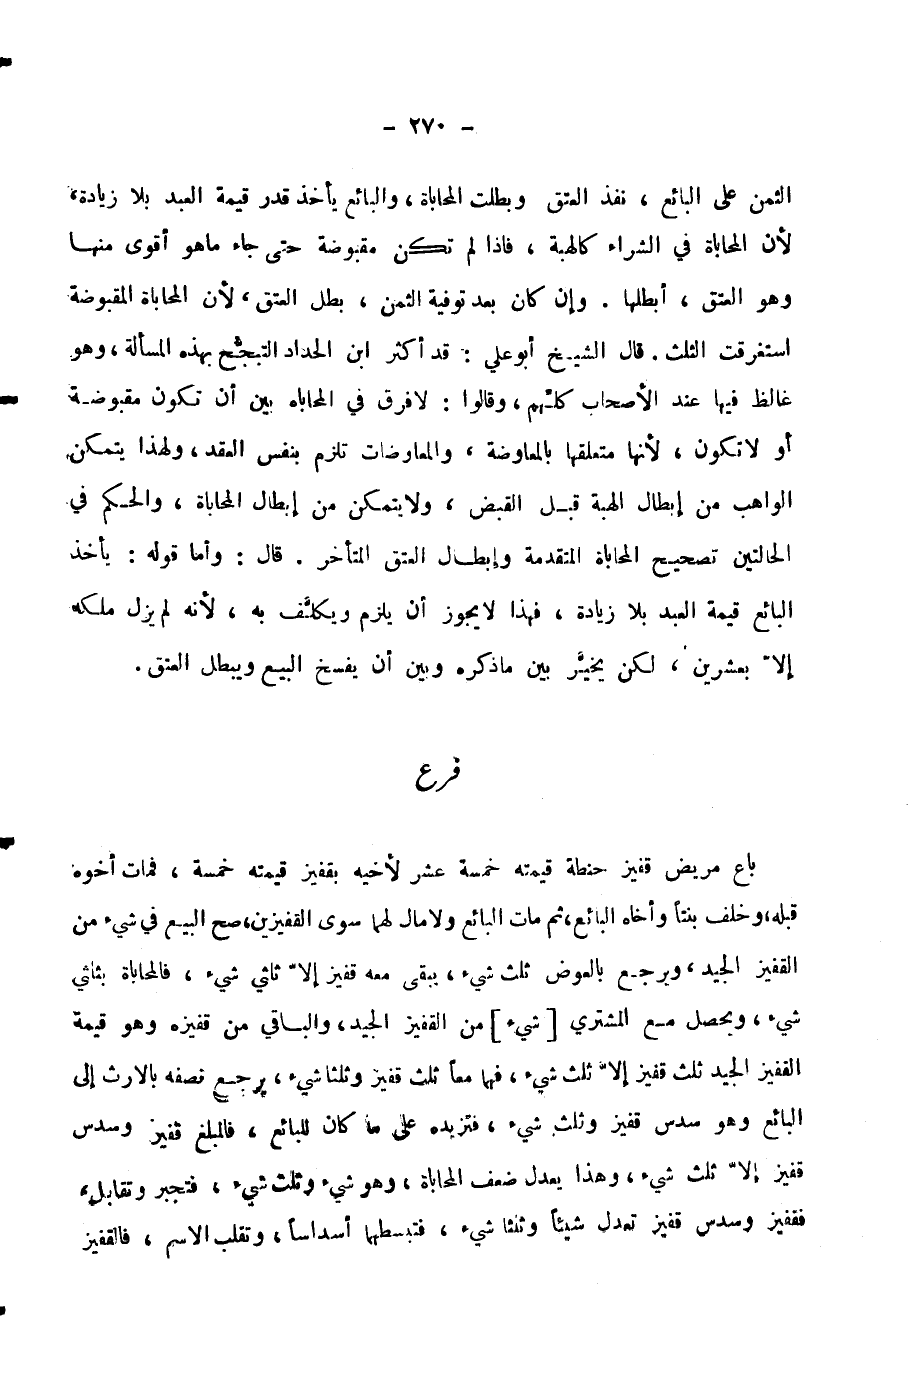 - ٢٧٠ -
الثمن على البائع ، نفذ العتق وبطلت المحاباة ، والبائع يأخذ قدر قيمة العبد بلا زيادة،
لأن المحاباة في الشراء كالهبة ، فاذا لم تكن مقبوضة حتى جاء ماهو أقوى منها
وهو العتق ، أبطلها . وإن كان بعد توفية الثمن ، بطل العتق ، لأن المحاباة المقبوضة
استغرقت الثلث . قال الشيخ أبو علي : قد أكثر ابن الحداد التبجُّح بهذه المسألة ، وهو
غالط فيها عند الأصحاب كلِّهم ، وقالوا : لا فرق في المحاباه بين أن تكون مقبوضة
أو لا تكون ، لأنها متعلقها بالمعاوضة ، والمعاوضات تلزم بنفس العقد ، ولهذا يتمكن
الواهب من إبطال الهبة قبل القبض ، ولا يتمكن من إبطال المحاباة ، والحكم في
الحالتين تصحيح المحاباة المتقدمة وإبطال العتق المتأخر . قال : وأما قوله : يأخذ
البائع قيمة العبد بلا زيادة ، فهذا لا يجوز أن يلزم ويكلَّف به ، لأنه لم يزل ملكه
إلا َّ بعشرين ، لكن يخيَّر بين ماذكره وبين أن يفسخ البيع ويبطل العتق .
فرع
باع مريض قفيز حنطة قيمته خمسة عشر لأخيه بقفيز قيمته خمسة ، فمات أخوه
قبله، وخلف بنتاً وأخاه البائع، ثم مات البائع ولا مال لهما سوى القفيزين، صح البيع في شيء من
القفيز الجيد ، ويرجع بالعوض ثلث شيء ، يبقى معه قفيز إلا َّ ثلثي شيء ، فالمحاباة بثلثي
شيء ، ويحصل مع المشتري [ شيء ] من القفيز الجيد ، والباقي من قفيزه وهو قيمة
القفيز الجيد ثلث قفيز إلا َّ ثلث شيء ، فهما معاً ثلث قفيز وثلثا شيء ، يرجع نصفه بالارث إلى
البائع وهو سدس قفيز وثلث شيء ، فتزيده على ما كان للبائع ، فالمبلغ قفيز وسدس
قفيز إلا َّ ثلث شيء ، وهذا يعدل ضعف المحاباة ، وهو شيء وثلث شيء ، فتجبر وتقابل ،
فقفيز وسدس قفيز تعدل شيئاً وثلثا شيء ، فتبسطها أسداساً ، وتقلب الاسم ، فالقفيز